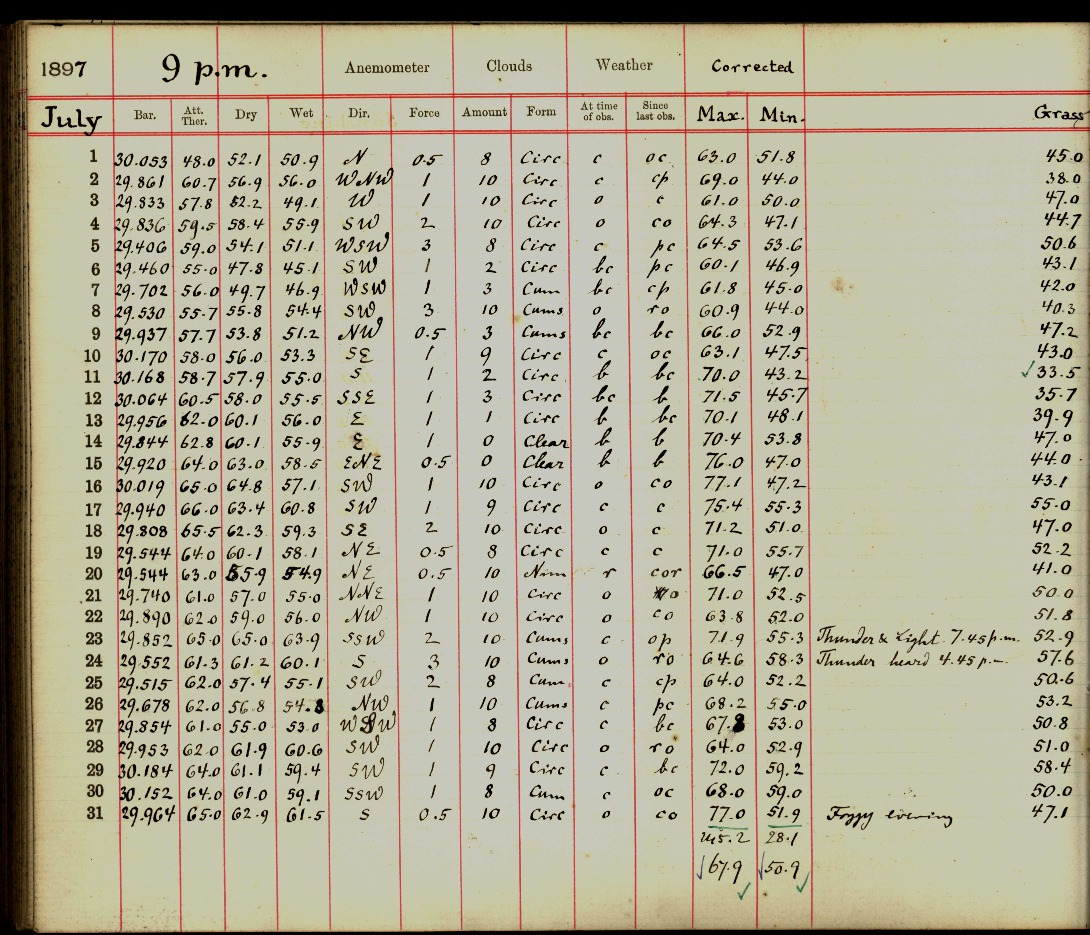 1897 9 p.m. Anemometer Clouds Weather Corrected
July Bar. Att. Ther. Dry Wet Dir. Force Amount Form At time of obs. Since last obs. Max. Min. Grass
1 30.053 48.0 52.1 50.9 N 0.5 8 Circ c oc 63.0 51.8 45.0
2 29.861 60.7 56.9 56.0 WNW 1 10 Circ c cp 69.0 44.0 38.0
3 29.833 57.8 52.2 49.1 W 1 10 Circ o c 61.0 50.0 47.0
4 29.836 59.5 58.4 55.9 SW 2 10 Circ o co 64.3 47.1 44.7
5 29.406 59.0 54.1 51.1 WSW 3 8 Circ c pc 64.5 53.6 50.6
6 29.460 55.0 47.8 45.1 SW 1 2 Circ bc pc 60.1 46.9 43.1
7 29.702 56.0 49.7 46.9 WSW 1 3 Cum bc cp 61.8 45.0 42.0
8 29.530 55.7 55.8 54.4 SW 3 10 Cums o ro 60.9 44.0 40.3
9 29.937 57.7 53.8 51.2 NW 0.5 3 Cums bc bc 66.0 52.9 47.2
10 30.170 58.0 56.0 53.3 SE 1 9 Circ c oc 63.1 47.5 43.0
11 30.168 58.7 57.9 55.0 S 1 2 Circ b bc 70.0 43.2 ✓33.5
12 30.064 60.5 58.0 55.5 SSE 1 3 Circ bc b 71.5 45.7 35.7
13 29.956 62.0 60.1 56.0 E 1 1 Circ b bc 70.1 48.1 39.9
14 29.844 62.8 60.1 55.9 E 1 0 Clear b b 70.4 53.8 47.0
15 29.920 64.0 63.0 58.5 ENE 0.5 0 Clear b b 76.0 47.0 44.0
16 30.019 65.0 64.8 57.1 SW 1 10 Circ o co 77.1 47.2 43.1
17 29.940 66.0 63.4 60.8 SW 1 9 Circ c c 75.4 55.3 55.0
18 29.808 65.5 62.3 59.3 SE 2 10 Circ o c 71.2 51.0 47.0
19 29.544 64.0 60.1 58.1 NE 0.5 8 Circ c c 71.0 55.7 52.2
20 29.544 63.0 55.9 54.9 NE 0.5 10 Nim r cor 66.5 47.0 41.0
21 29.740 61.0 57.0 55.0 NNE 1 10 Circ o 71.0 52.5 50.0
22 29.890 62.0 59.0 56.0 NW 1 10 Circ o co 63.8 52.0 51.8
23 29.852 65.0 65.0 63.9 SSW 2 10 Cums c op 71.9 55.3 Thunder & Light 7.45 p.m. 52.9
24 29.552 61.3 61.2 60.1 S 3 10 Cums o ro 64.6 58.3 Thunder heard 4.45 p.m. 57.6
25 29.515 62.0 57.4 55.1 SW 2 8 Cum c cp 64.0 52.2 50.6
26 29.678 62.0 56.8 54.8 NW 1 10 Cums c pc 68.2 55.0 53.2
27 29.854 61.0 55.0 53.0 WSW 1 8 Circ c bc 67.8 53.0 50.8
28 29.953 62.0 61.9 60.6 SW 1 10 Circ o ro 64.0 52.9 51.0
29 30.184 64.0 61.1 59.4 SW 1 9 Circ c bc 72.0 59.2 58.4
30 30.152 64.0 61.0 59.1 SSW 1 8 Cum c oc 68.0 59.0 50.0
31 29.964 65.0 62.9 61.5 S 0.5 10 Circ o co 77.0 51.9 Foggy evening 47.1
28.1
67.9 50.9